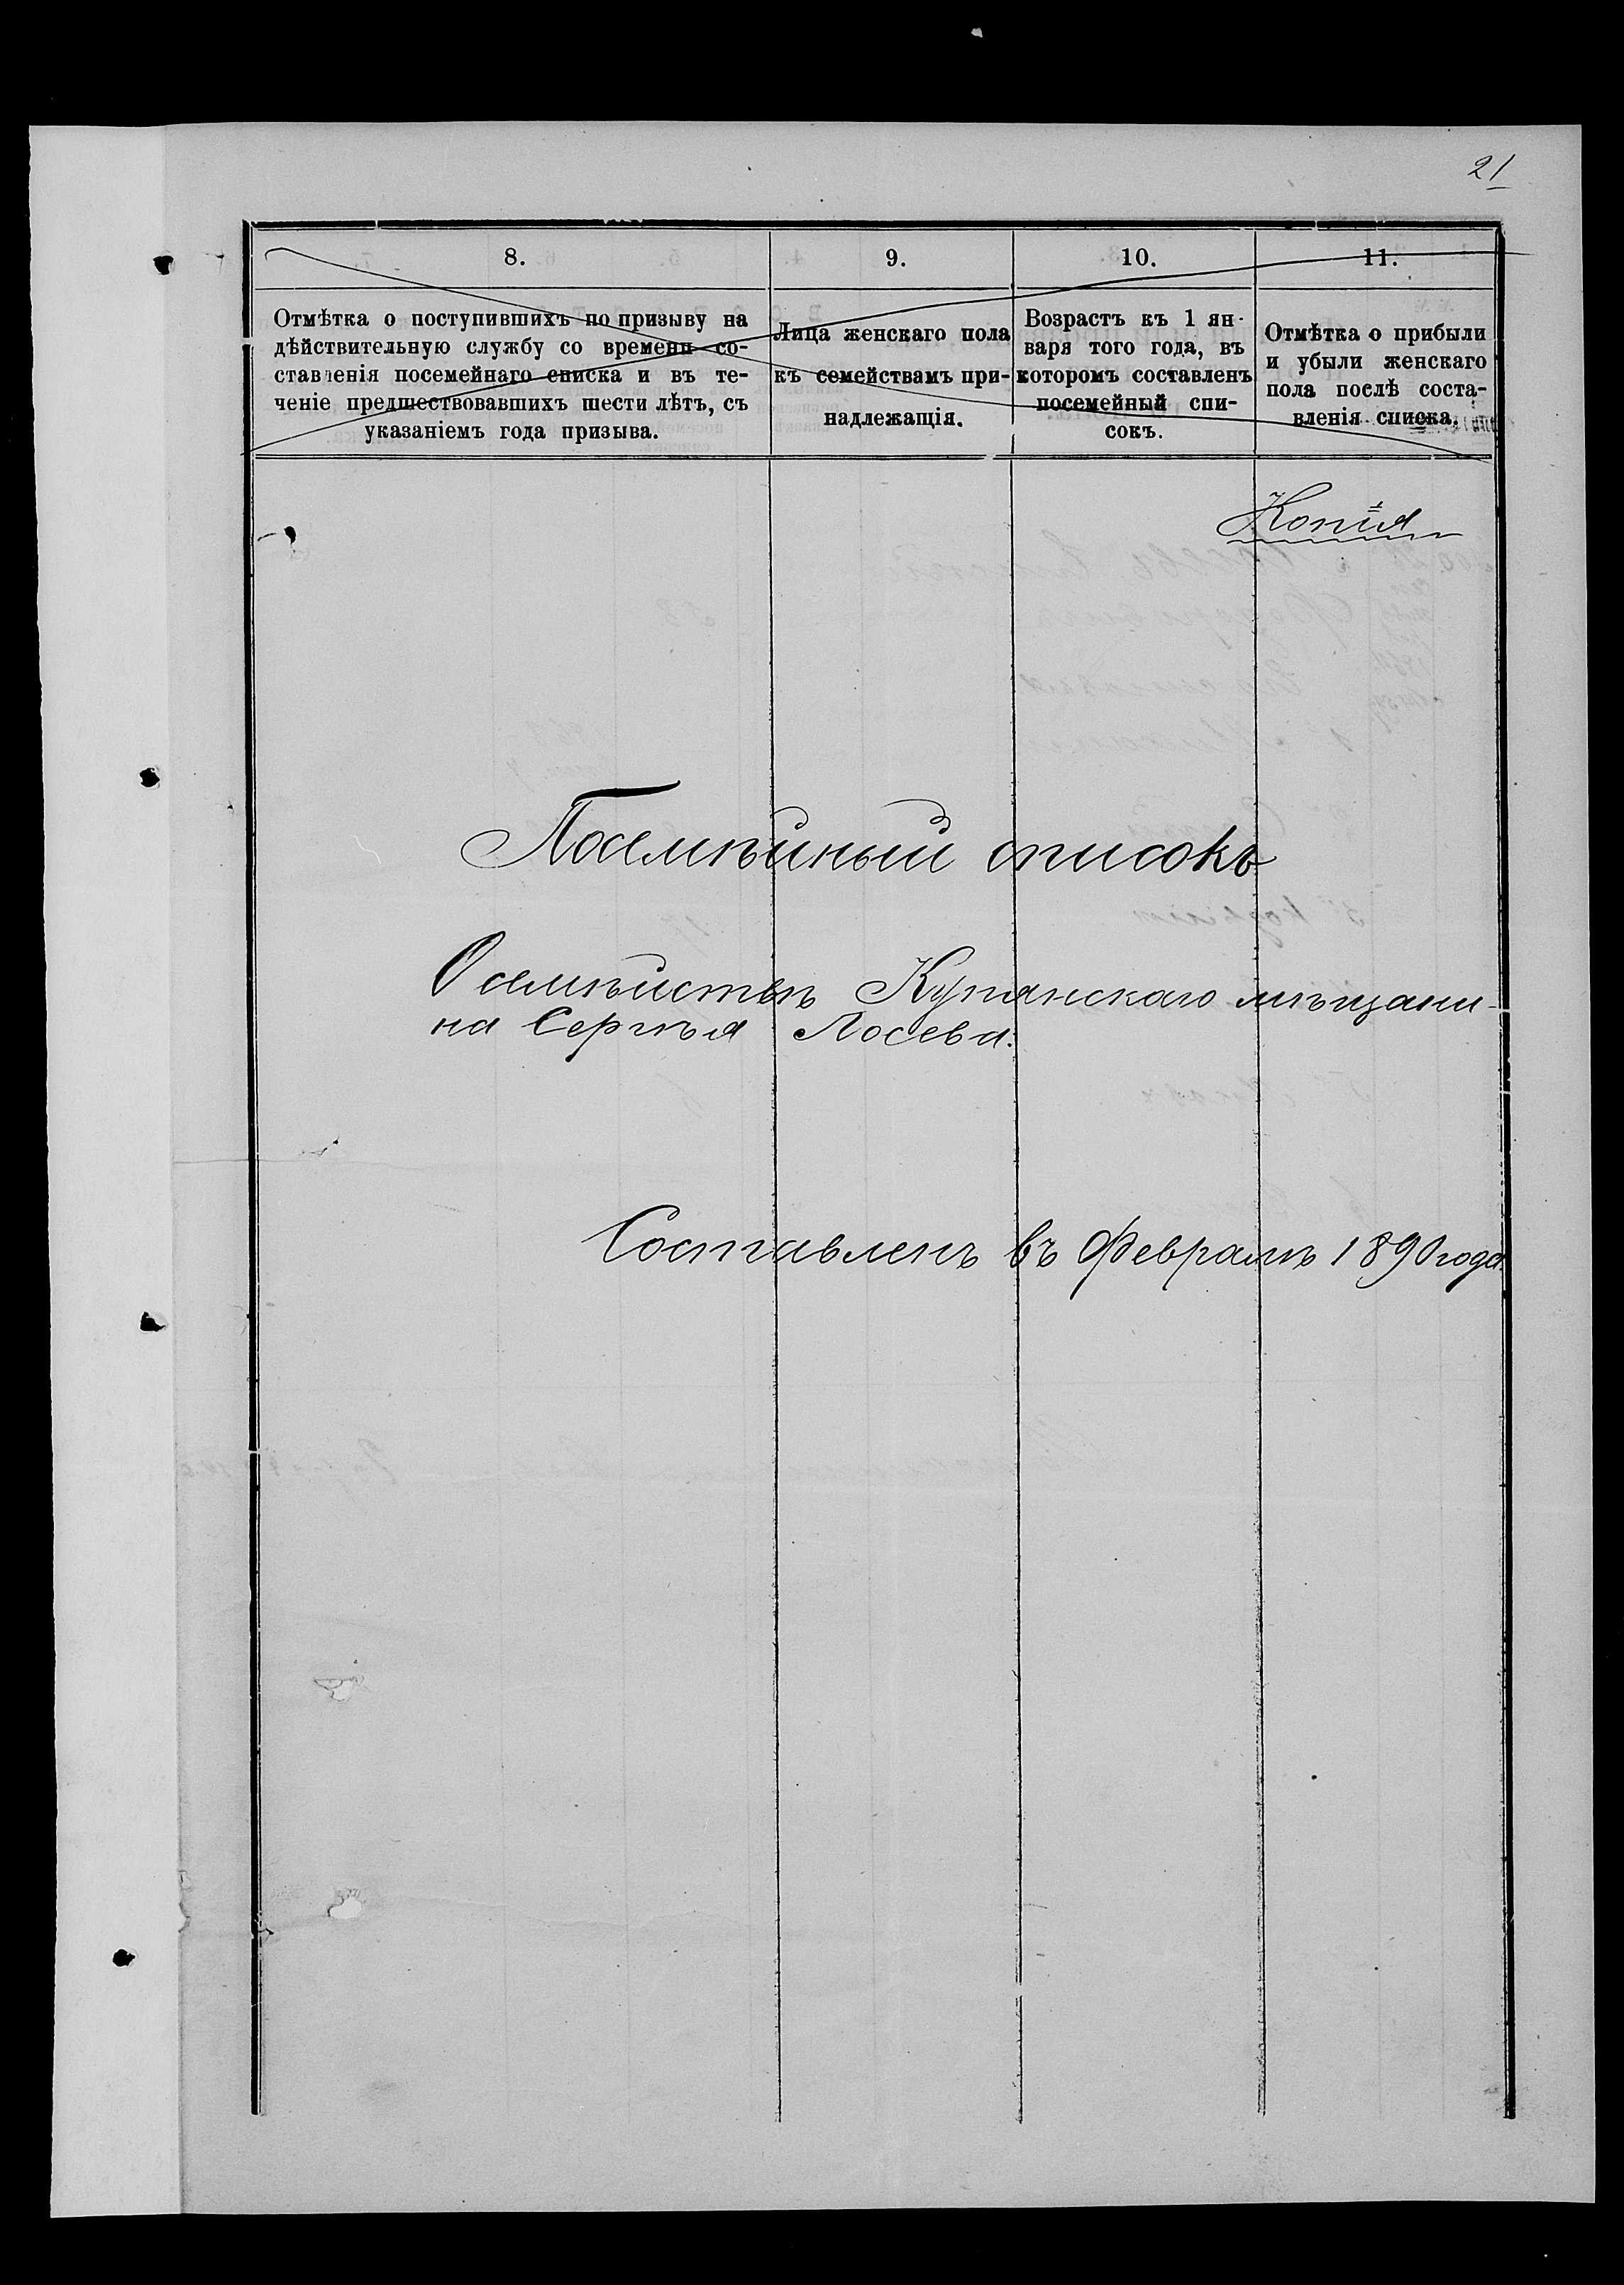 21
8.
9.
10.
11.
Отмѣтка о поступившихъ по призыву на
дѣйствительную службу со времени со-
ставленія посемейнаго списка и въ те-
ченіе предшествовавшихъ шести лѣтъ, съ
указаніемъ года призыва.
Лица женскаго пола
къ семействамъ при-
надлежащія.
Возрастъ къ 1 ян-
варя того года, въ
которомъ составленъ
посемейный спи-
сокъ.
Отмѣтка о прибыли
и убыли женскаго
пола послѣ соста-
вленія списка.
Копія
Посемѣйный списокъ
О семѣйствѣ Купянскаго мѣщани-
на Сергѣя Лосева:
Составленъ въ Февралѣ 1890 года.